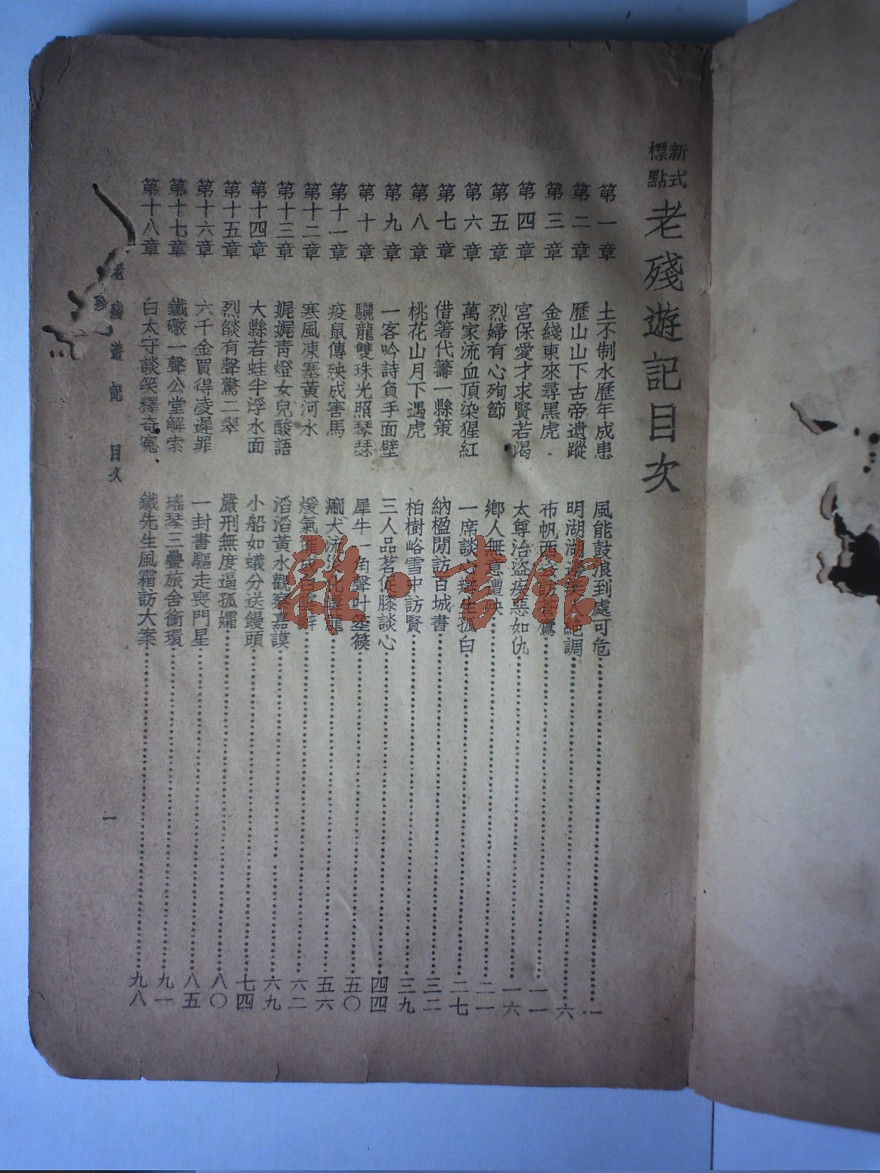 新式標點 老殘遊記目次
第一章 土不制水歷年成患 風能鼓浪到處可危 一
第二章 歷山山下古帝遺蹤 明湖湖邊美人絕調 六
第三章 金綫東來尋黑虎 布帆西去訪蒼鷹 一一
第四章 宮保愛才求賢若渴 太尊治盜疾惡如仇 一六
第五章 烈婦有心殉節 鄉人無意遭殃 二一
第六章 萬家流血頂染猩紅 一席談心辯生狐白 二七
第七章 借箸代籌一縣策 納楹閒訪百城書 三二
第八章 桃花山月下遇虎 柏樹峪雪中訪賢 三九
第九章 一客吟詩負手面壁 三人品茗促膝談心 四四
第十章 驪龍雙珠光照琴瑟 犀牛一角聲叶箜篌 五〇
第十一章 疫鼠傳殃成害馬 瘈犬流災化毒龍 五六
第十二章 寒風凍塞黃河水 煖氣催成白雪辭 六二
第十三章 娓娓青燈女兒酸語 滔滔黃水觀察嘉謨 六九
第十四章 大縣若蛙半浮水面 小船如蟻分送饅頭 七四
第十五章 烈燄有聲驚二翠 嚴刑無度逼孤孀 八〇
第十六章 六千金買得凌遲罪 一封書驅走喪門星 八五
第十七章 鐵礮一聲公堂解索 瑤琴三疊旅舍銜環 九一
第十八章 白太守談笑釋奇冤 鐵先生風霜訪大案 九八
老殘遊記 目次 一
雜·書館